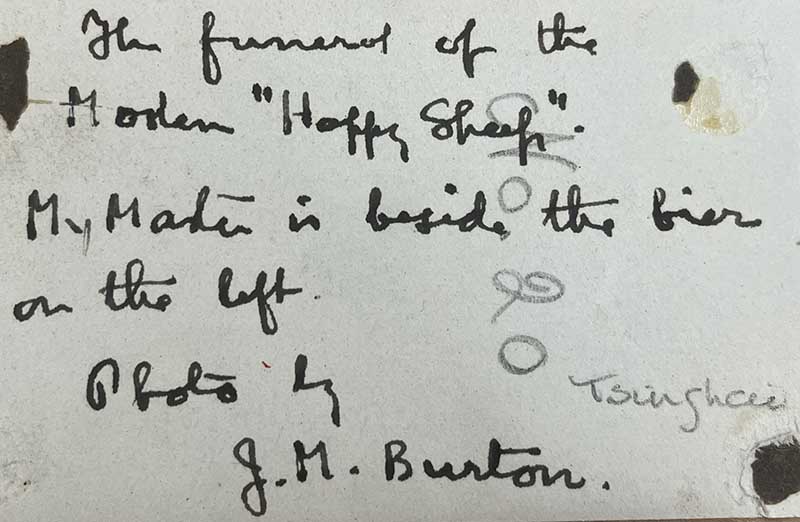 The funeral of the
Moslem "Happy Sheep".
Mr Martin is beside the bier
on the left.
Photo by
J. M. Burton.
Tsinghai